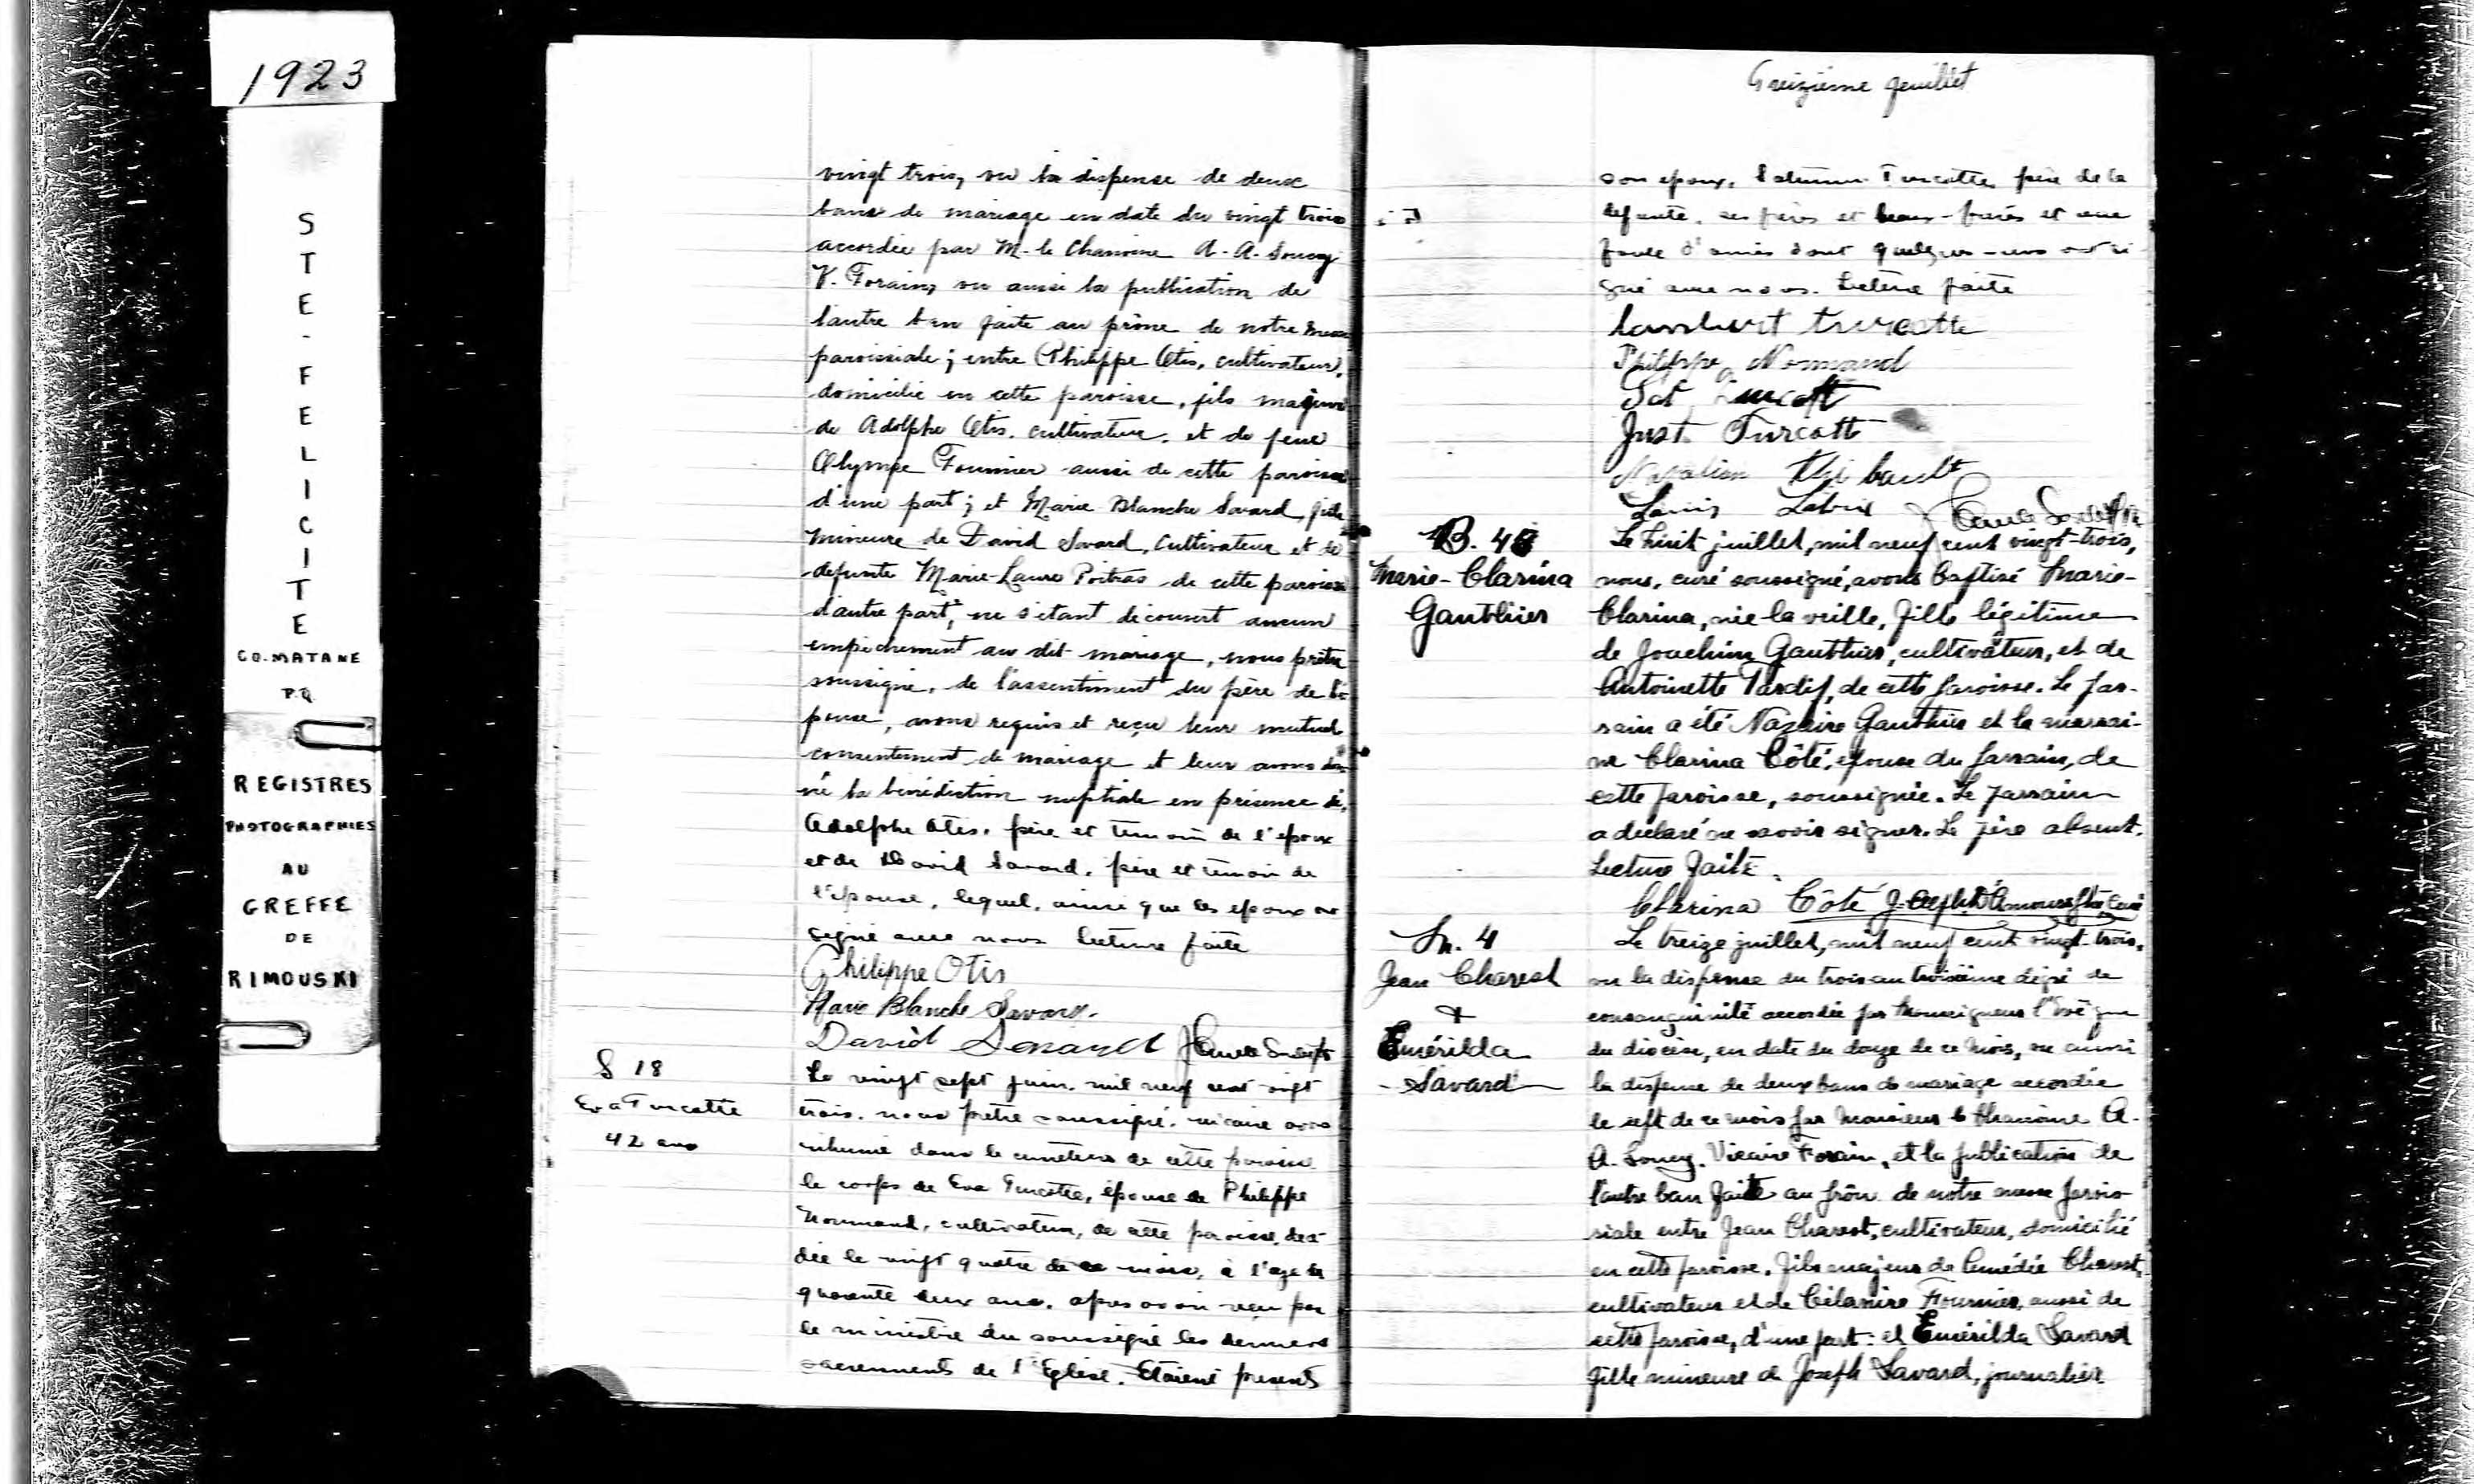 1923
STE-FELICITE
CO. MATANE
P.Q.
REGISTRES
PHOTOGRAPHIES
AU
GREFFE
DE
RIMOUSKI
vingt trois, vu la dispense de deux
bans de mariage en date du vingt trois
accordée par M. le Chanoine A. A. Soucy
V. Forain, vu aussi la publication de
l'autre ban faite au prône de notre messe
paroissiale; entre Philippe Otis, cultivateur,
domicilié en cette paroisse, fils majeur
de Adolphe Otis, cultivateur, et de feue
Olympe Fournier aussi de cette paroisse
d'une part; et Marie Blanche Savard, fille
mineure de David Savard, cultivateur et de
defunte Marie-Laure Poitras de cette paroisse
d'autre part, ne s'etant découvert aucun
empêchement au dit mariage, nous prêtre
soussigné, de l'assentiment du père de l'é-
pouse, avons requis et reçu leur mutuel
consentement de mariage et leur avons don
né la bénédiction nuptiale en présence de,
Adolphe Otis, père et temoin de l'epoux
et de David Savard, père et temoin de
l'épouse, lequel, ainsi que les epoux ont
signé avec nous Lecture faite
Philippe Otis
Marie Blanche Savard.
David Savard
S 18
Eva Turcotte
42 ans
Le vingt sept juin, mil neuf cent vingt
trois, nous pretre soussigné, vicaire avons
inhumé dans le cimetiere de cette paroisse
le corps de Eva Turcotte, épouse de Philippe
Normand, cultivateur, de cette paroisse, décé-
dée le vingt quatre de ce mois, à l'age de
quarante deux ans, apres avoir reçu par
le ministère du soussigné les derniers
sacrements de l'Eglise. Etaient presents
Treizième feuillet
son epoux, Turcotte, père de la
defunte, ses frères et beaux-frères et une
foule d'amis dont quelques-uns ont si
gné avec nous. Lecture faite
Lambert Turcotte
Philippe Normand
Turcotte
Just. Turcott
Thibault
Louis
B. 48
Marie-Clarina
Gauthier
Le huit juillet, mil neuf cent vingt-trois,
nous, curé soussigné, avons baptisé Marie-
Clarina, née la veille, fille légitime
de Joachim Gauthier, cultivateur, et de
Antoinette Tardif, de cette paroisse. Le par-
rain a été Nazaire Gauthier et la marrai-
ne Clarina Côté, épouse du parrain, de
cette paroisse, soussignée. Le parrain
a déclaré ne savoir signer. Le père absent.
Lecture faite.
Clarina Côté J. D'Amours Ptre Curé
M. 4
Jean Charest
+
Emérilda
Savard
Le treize juillet, mil neuf cent vingt-trois,
vu la dispense du trois au troisième degré de
consanguinité accordée par Monseigneur l'Evêque
du diocèse, en date du douze de ce mois, vu aussi
la dispense de deux bans de mariage accordée
le sept de ce mois par Monsieur le Chanoine A.
A. Soucy, Vicaire Forain, et la publication de
l'autre ban faite au prône de notre messe parois-
siale entre Jean Charest, cultivateur, domicilié
en cette paroisse, fils majeur de Charest,
cultivateur et de Célanire Fournier, aussi de
cette paroisse, d'une part: et Emérilda Savard
fille mineure de Joseph Savard, journalier